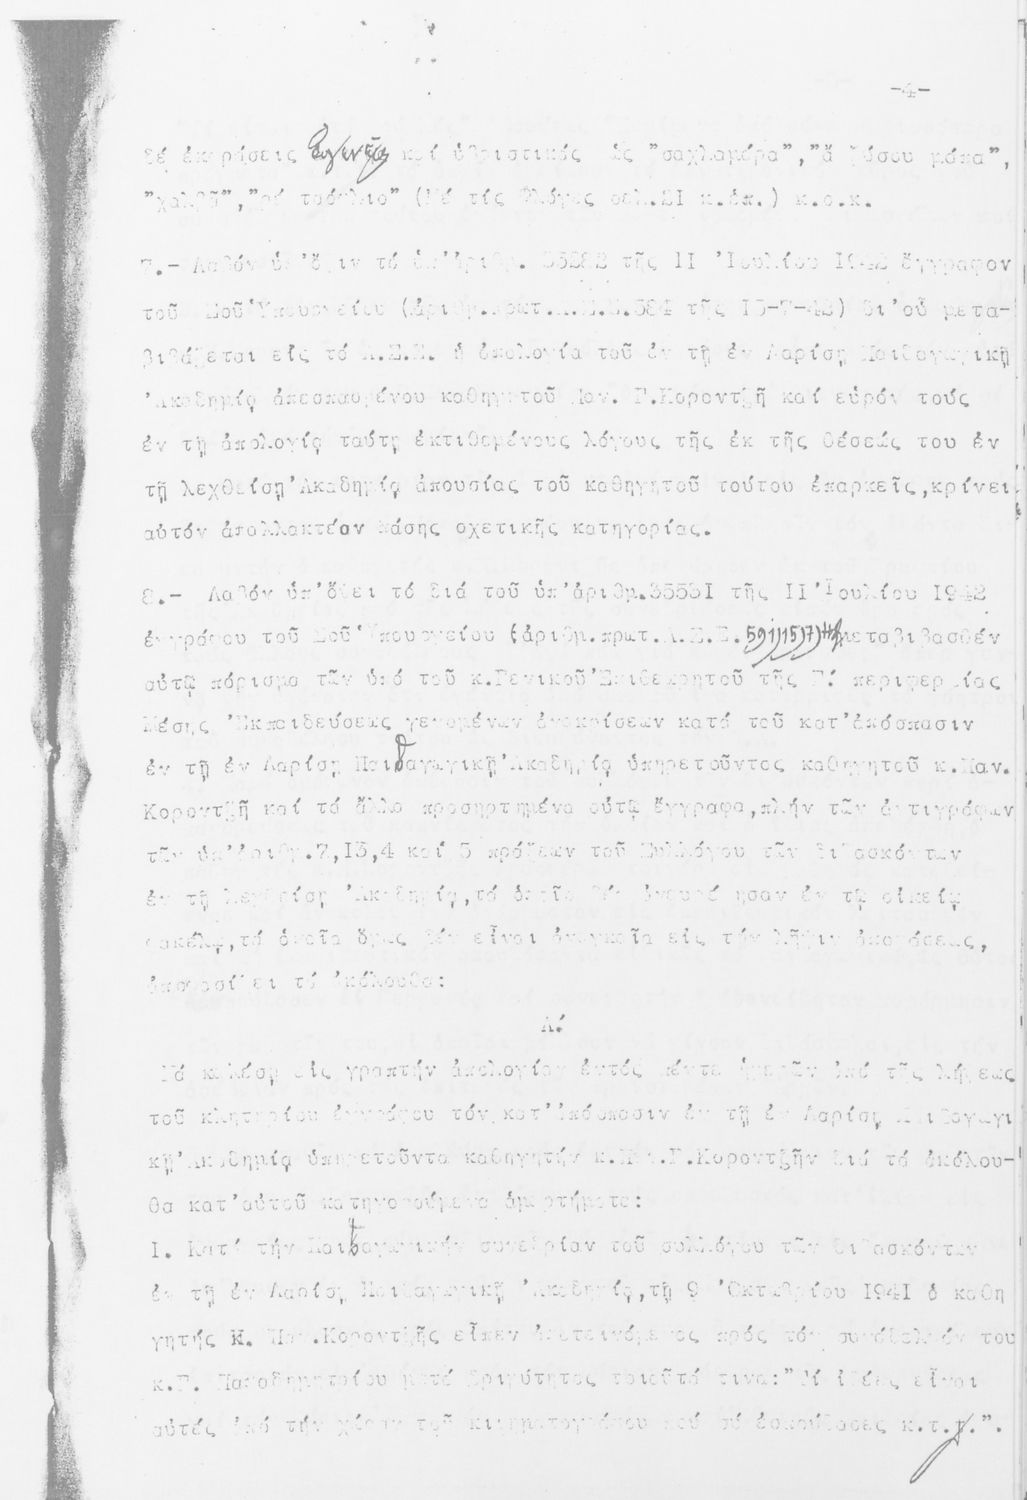 -4-
δέ ἐκφράσεις καί ὑβριστικάς ὡς "σαχλαμάρα", "ἄ ζήσου μάπα",
"χαλβᾶ", "ρέ τρόμπιο" (Μέ τίς Φλόγες σελ.21 κ.ἑπ.) κ.ο.κ.
7.- Λαβόν ὑπ'ὄψιν τό ὑπ'ἀριθμ. 35282 τῆς 11 Ἰουλίου 1942 ἔγγραφον
τοῦ Σοῦ Ὑπουργείου (ἀριθμ.πρωτ.Α.Σ.Ε.584 τῆς 15-7-42) δι'οὗ μετα-
βιβάζεται εἰς τό Α.Σ.Ε. ἡ ἀπολογία τοῦ ἐν τῇ ἐν Λαρίσῃ Παιδαγωγικῇ
Ἀκαδημίᾳ ἀπεσπασμένου καθηγητοῦ Παν. Γ.Κοροντζῆ καί εὑρόν τούς
ἐν τῇ ἀπολογίᾳ ταύτῃ ἐκτιθεμένους λόγους τῆς ἐκ τῆς θέσεώς του ἐν
τῇ λεχθείσῃ Ἀκαδημίᾳ ἀπουσίας τοῦ καθηγητοῦ τούτου ἐπαρκεῖς, κρίνει
αὐτόν ἀπαλλακτέον πάσης σχετικῆς κατηγορίας.
8.- Λαβόν ὑπ'ὄψει τό διά τοῦ ὑπ'ἀριθμ.35531 τῆς 11 Ἰουλίου 1942
ἐγγράφου τοῦ Σοῦ Ὑπουργείου (ἀριθμ.πρωτ.Α.Σ.Ε. 591)15)7) μεταβιβασθέν
αὐτῷ πόρισμα τῶν ὑπό τοῦ κ.Γενικοῦ Ἐπιθεωρητοῦ τῆς Γ΄ περιφερείας
Μέσης Ἐκπαιδεύσεως γενομένων ἀνακρίσεων κατά τοῦ κατ'ἀπόσπασιν
ἐν τῇ ἐν Λαρίσῃ Παιδαγωγικῇ Ἀκαδημίᾳ ὑπηρετοῦντος καθηγητοῦ κ.Παν.
Κοροντζῆ καί τά ἄλλα προσηρτημένα αὐτῷ ἔγγραφα, πλήν τῶν ἀντιγράφων
τῶν ὑπ'ἀριθμ.7,13,4 καί 5 πράξεων τοῦ Συλλόγου τῶν διδασκόντων
ἐν τῇ λεχθείσῃ Ἀκαδημίᾳ, τά ὁποῖα δέν ἀνευρέθησαν ἐν τῷ οἰκείῳ
φακέλῳ, τά ὁποῖα ὅμως δέν εἶναι ἀναγκαῖα εἰς τήν λῆψιν ἀποφάσεως,
ἀποφασίζει τά ἀκόλουθα:
Α΄
Νά καλέσῃ εἰς γραπτήν ἀπολογίαν ἐντός πέντε ἡμερῶν ἀπό τῆς λήψεως
τοῦ κλητηρίου ἐγγράφου τόν κατ'ἀπόσπασιν ἐν τῇ ἐν Λαρίσῃ Παιδαγωγι
κῇ Ἀκαδημίᾳ ὑπηρετοῦντα καθηγητήν κ.Παν.Γ.Κοροντζῆν διά τά ἀκόλου-
θα κατ'αὐτοῦ κατηγορούμενα ἁμαρτήματα:
1. Κατά τήν Παιδαγωγικήν συνεδρίαν τοῦ συλλόγου τῶν διδασκόντων
ἐν τῇ ἐν Λαρίσῃ Παιδαγωγικῇ Ἀκαδημίᾳ, τῇ 9 Ὀκτωβρίου 1941 ὁ καθη
γητής Κ. Παν.Κοροντζῆς εἶπεν ἀποτεινόμενος πρός τόν συνάδελφόν του
κ.Γ. Παπαδημητρίου μετά δριμύτητος τοιαῦτά τινα: "Τί ἰδέες εἶναι
αὐτές ἀπό τήν χώραν τοῦ κινηματογράφου πού σύ ἐσπούδασες κ.τ.τ.".